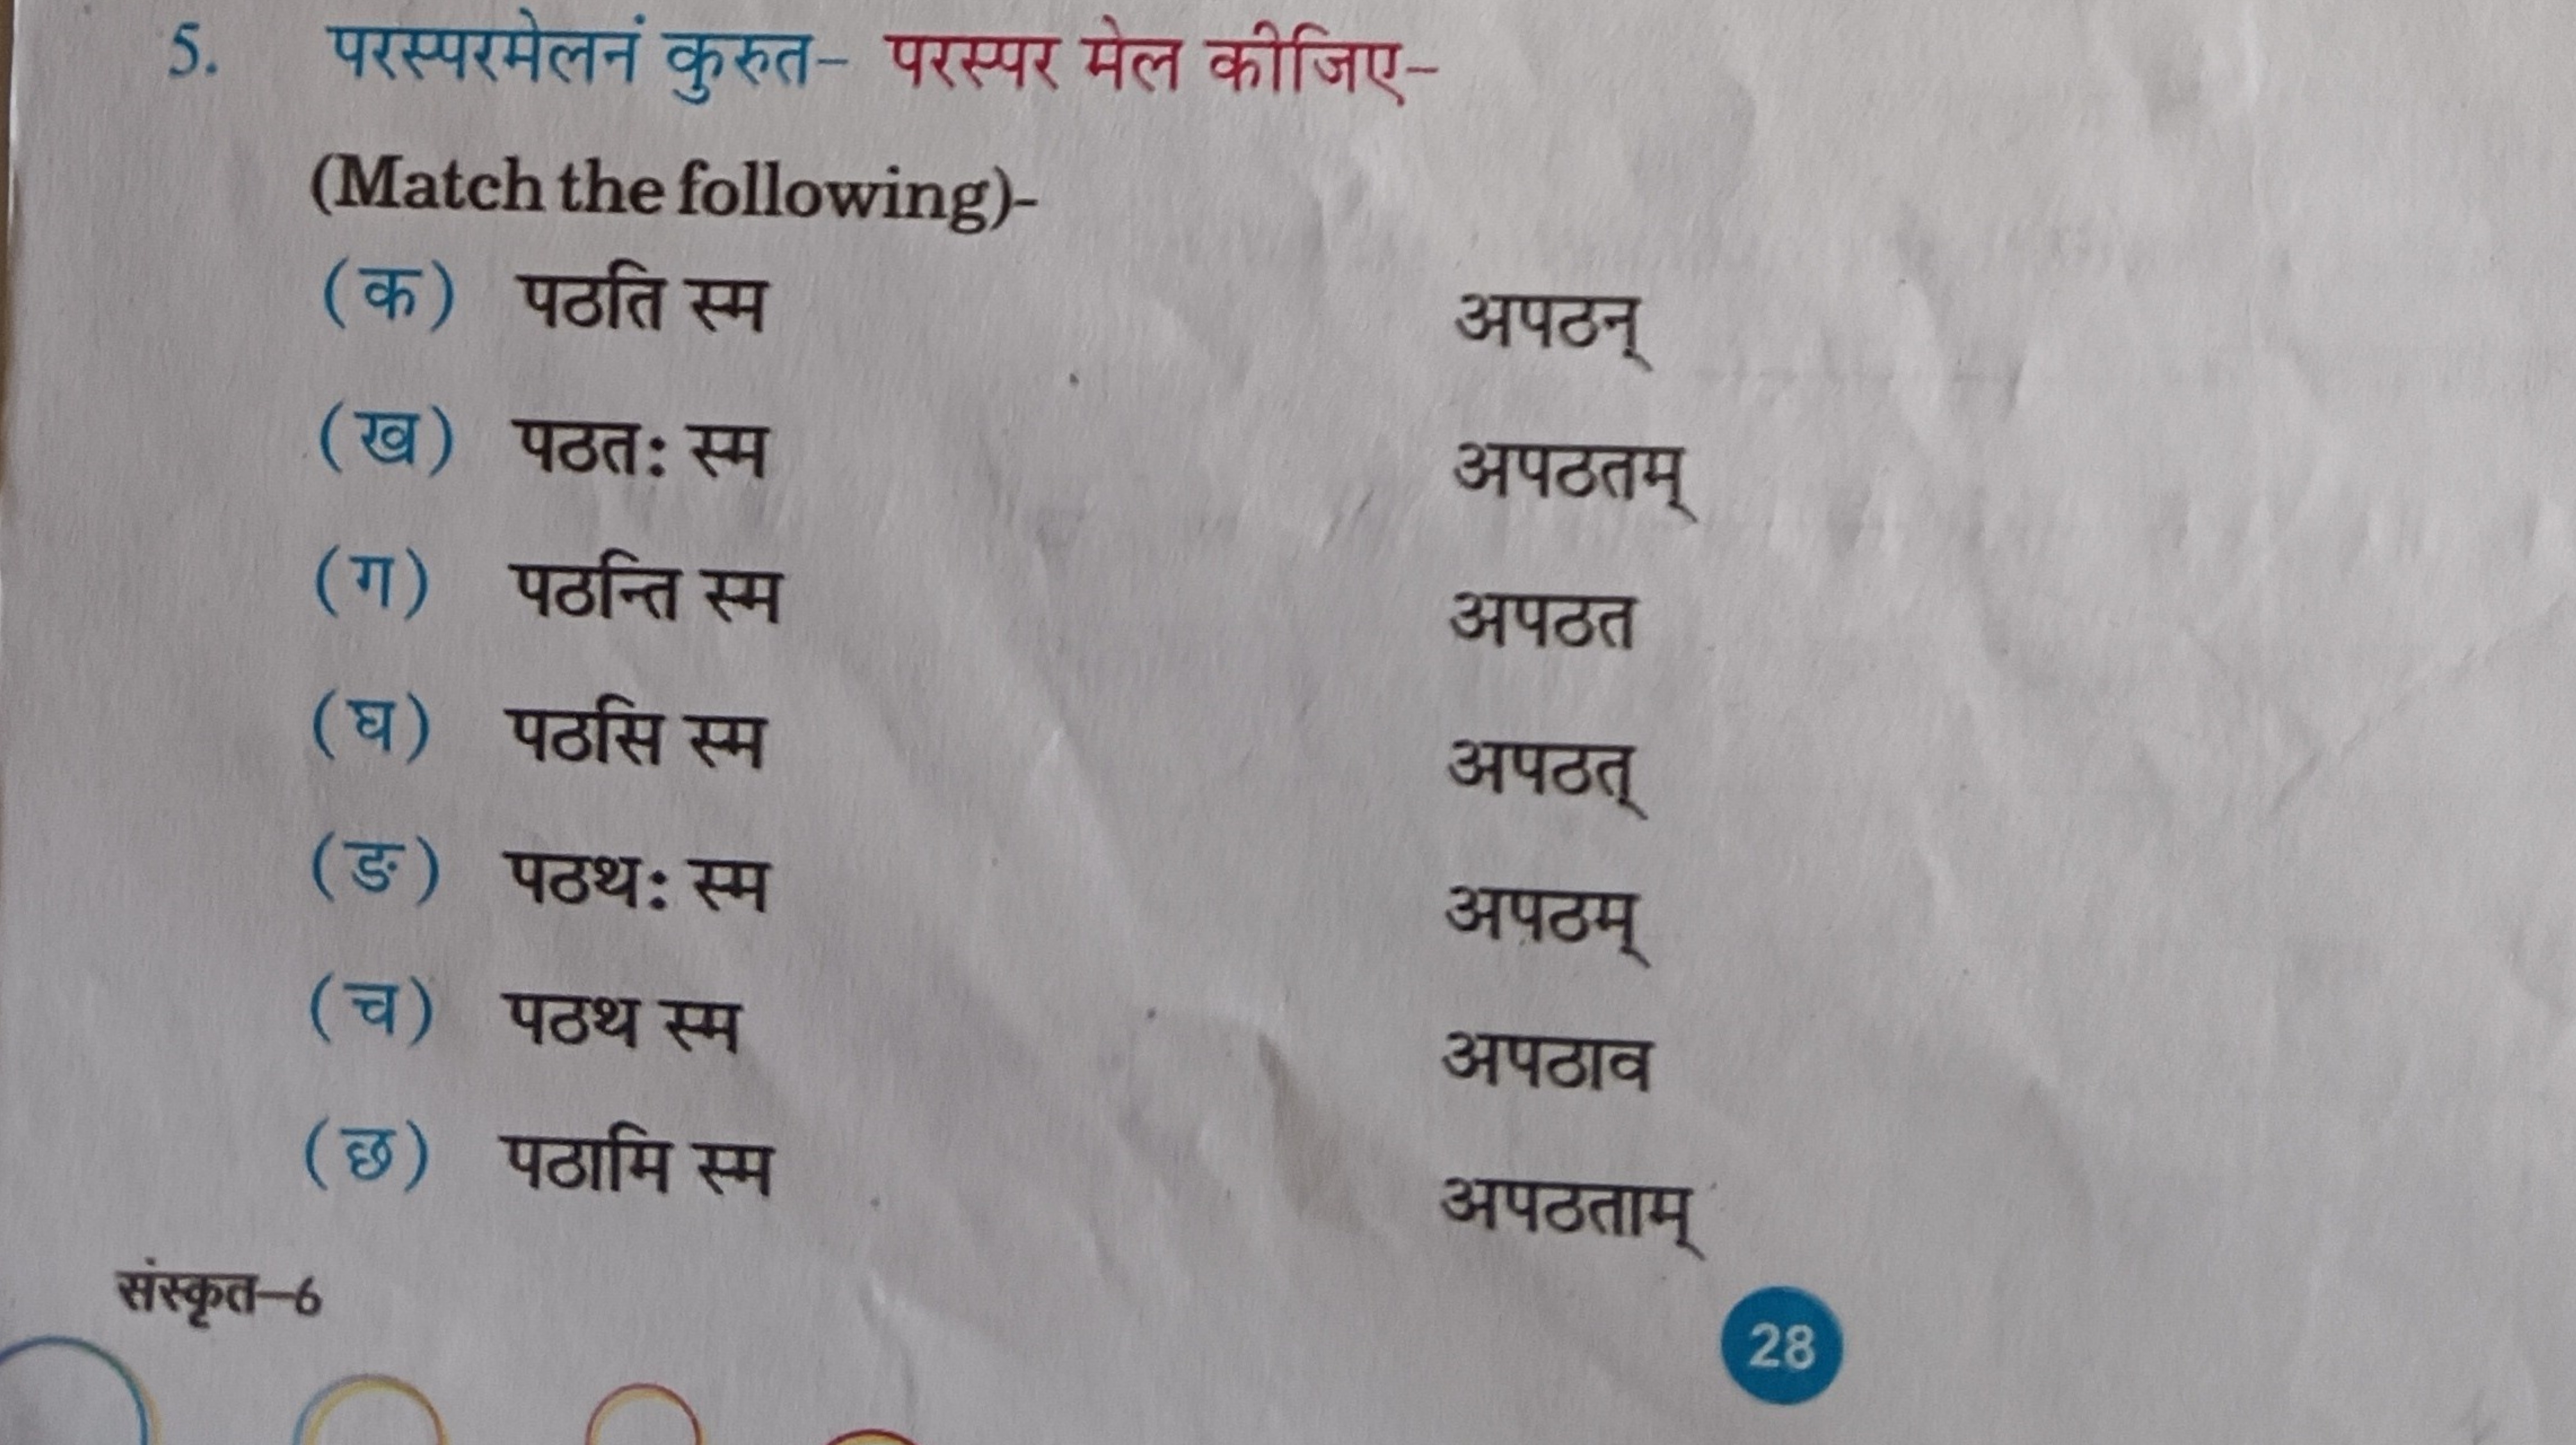 5. परस्परमेलनं कुरुत- परस्पर मेल कीजिए-
(Match the following)-
(क) पठति स्म अपठन्
(ख) पठतः स्म अपठतम्
(ग) पठन्ति स्म अपठत
(घ) पठसि स्म अपठत्
(ङ) पठथः स्म अपठम्
(च) पठथ स्म अपठाव
(छ) पठामि स्म अपठताम्
संस्कृत-6
28